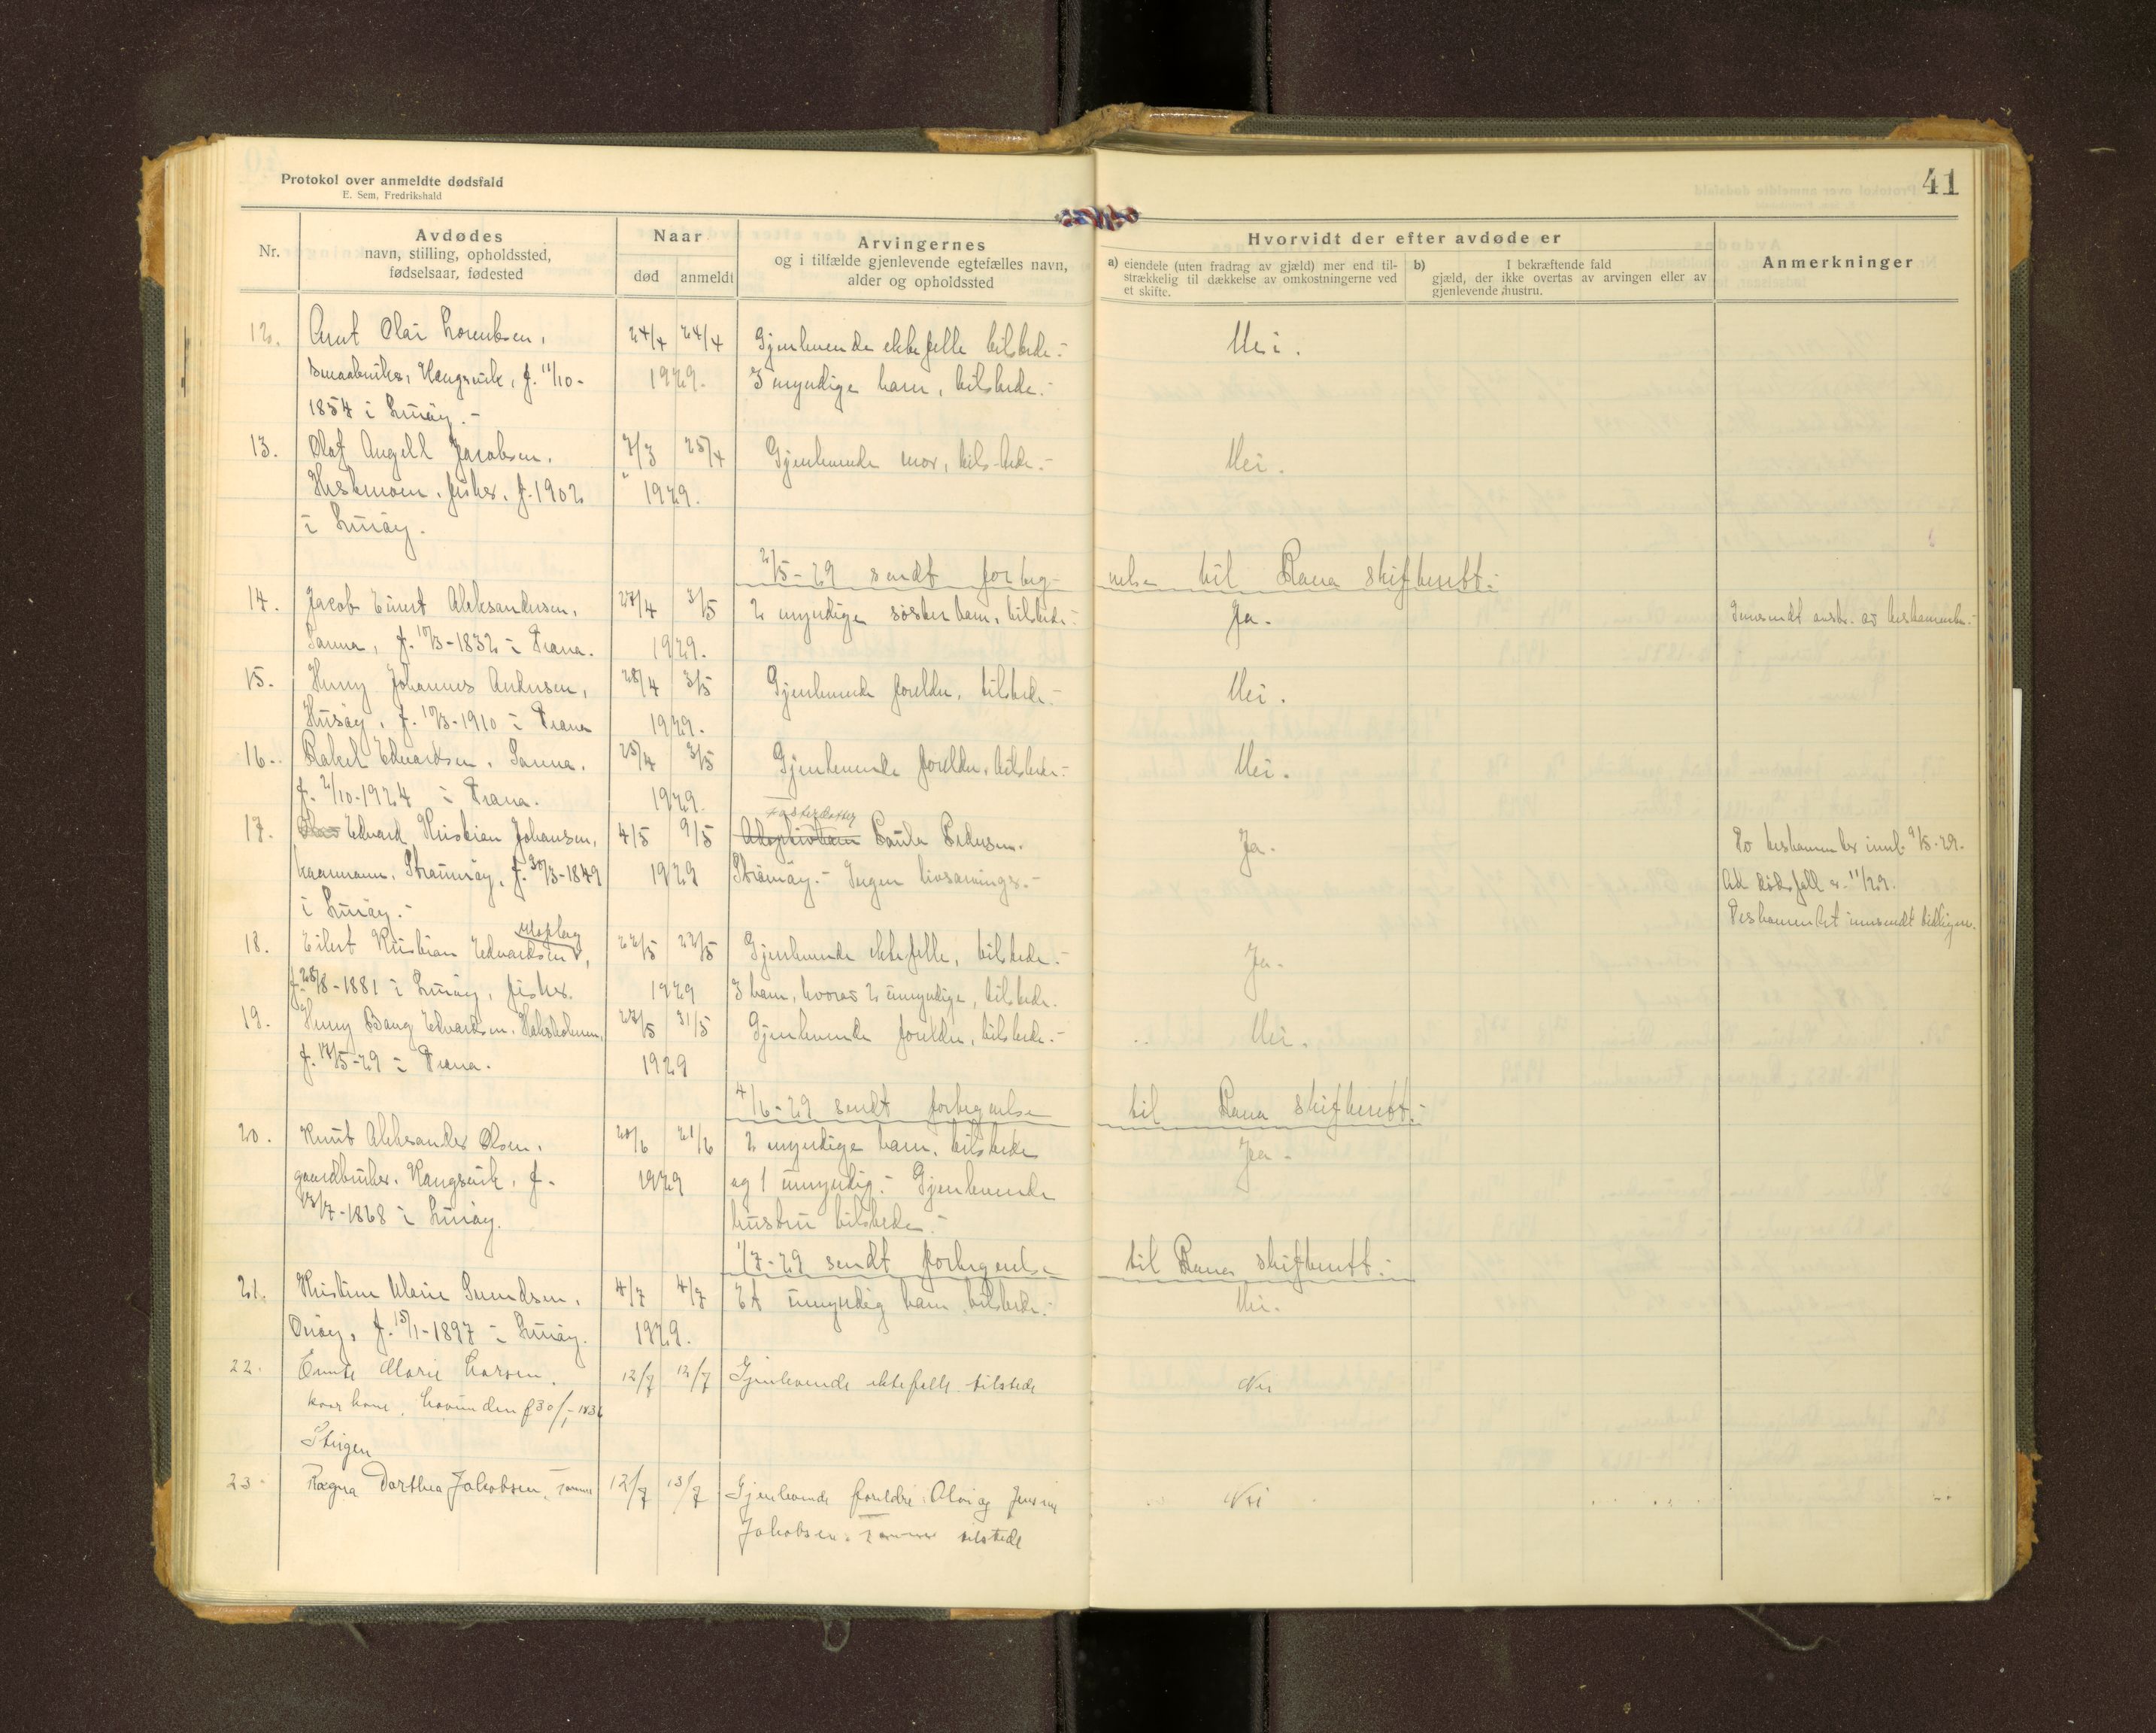 Protokol over anmeldte dødsfald
E. Sem, Fredrikshald
41
Nr.
Avdødes
navn, stilling, opholdssted,
fødselsaar, fødested
Naar
død anmeldt
Arvingernes
og i tilfælde gjenlevende egtefælles navn,
alder og opholdssted
Hvorvidt der efter avdøde er
a) eiendele (uten fradrag av gjæld) mer end til-
strækkelig til dækkelse av omkostningerne ved
et skifte.
b) I bekræftende fald
gjæld, der ikke overtas av arvingen eller av
gjenlevende hustru.
Anmerkninger
12. Arnt Olai Lorentsen, 24/4 24/4 Gjenlevende ektefelle tilstede.- Nei.
Smaabruker, Kongsvik, f. 11/10- 1929. 3 myndige barn, tilstede.-
1854 i Lurøy.-
13. Olaf Angell Jacobsen, 7/3 25/4 Gjenlevende mor, tilstede.- Nei.
Hestmoen, fisker, f. 1902 1929.
i Lurøy.
2/5-29 sendt fortegnelse til Rana skifterett.-
14. Jacob Einert Aleksandersen, 27/4 3/5 2 myndige søsken barn, tilstede.- Ja. Innsendt avskr. av testamente.-
Sanna, f. 10/3-1832 i Træna. 1929.
15. Henry Johannes Andersen, 28/4 3/5 Gjenlevende foreldre, tilstede.- Nei.
Husøy, f. 10/3-1910 i Træna 1929.
16. Rakel Edvardsen, Sanna, 25/4 3/5 Gjenlevende foreldre, tilstede.- Nei.
f. 2/10-1924 i Træna. 1929.
17. Edvard Kristian Johansen, 4/5 9/5 Fosterdatter Paula Pedersen. Ja. To testamenter innl. 9/5-29.
kaarmann, Straumøy, f. 30/3-1849 1929 Strømøy.- Ingen livsarvings.- Ad dødsfall nr. 11/29.
i Lurøy.- Testamentet innsendt tidligere.
18. Eilert Kristian Edvardsen, 22/5 22/5 Gjenlevende ektefelle, tilstede.- Ja.
f. 28/8-1881 i Lurøy, fisker. 1929 3 barn, hvorav 2 umyndige, tilstede.
19. Henry Bang Edvardsen, Holsholmen, 27/5 31/5 Gjenlevende foreldre, tilstede.- Nei.
f. 17/5-29 i Træna. 1929
4/6-29 sendt fortegnelse til Rana skifterett.-
20. Knut Aleksander Olsen, 20/6 21/6 2 myndige barn, tilstede Ja.
gaardbruker, Kongsvik, f. 1929 og 1 umyndig.- Gjenlevende
13/7-1868 i Lurøy. hustru tilstede.-
1/7-29 sendt fortegnelse til Rana skifterett.-
21. Kristine Marie Svendsen, 4/7 4/7 Et umyndig barn, tilstede.- Nei.
Onøy, f. 15/1-1897 i Lurøy. 1929.
22. Marie Larsen, 12/7 12/7 Gjenlevende ektefelle tilstede Nei
kaar kone, Lovunden f 30/1-1836
Stigen
23. Ragna Dorthea Jakobsen, 12/7 13/7 Gjenlevende foreldre Olai og Jensine Nei
Jakobsen, tilstede